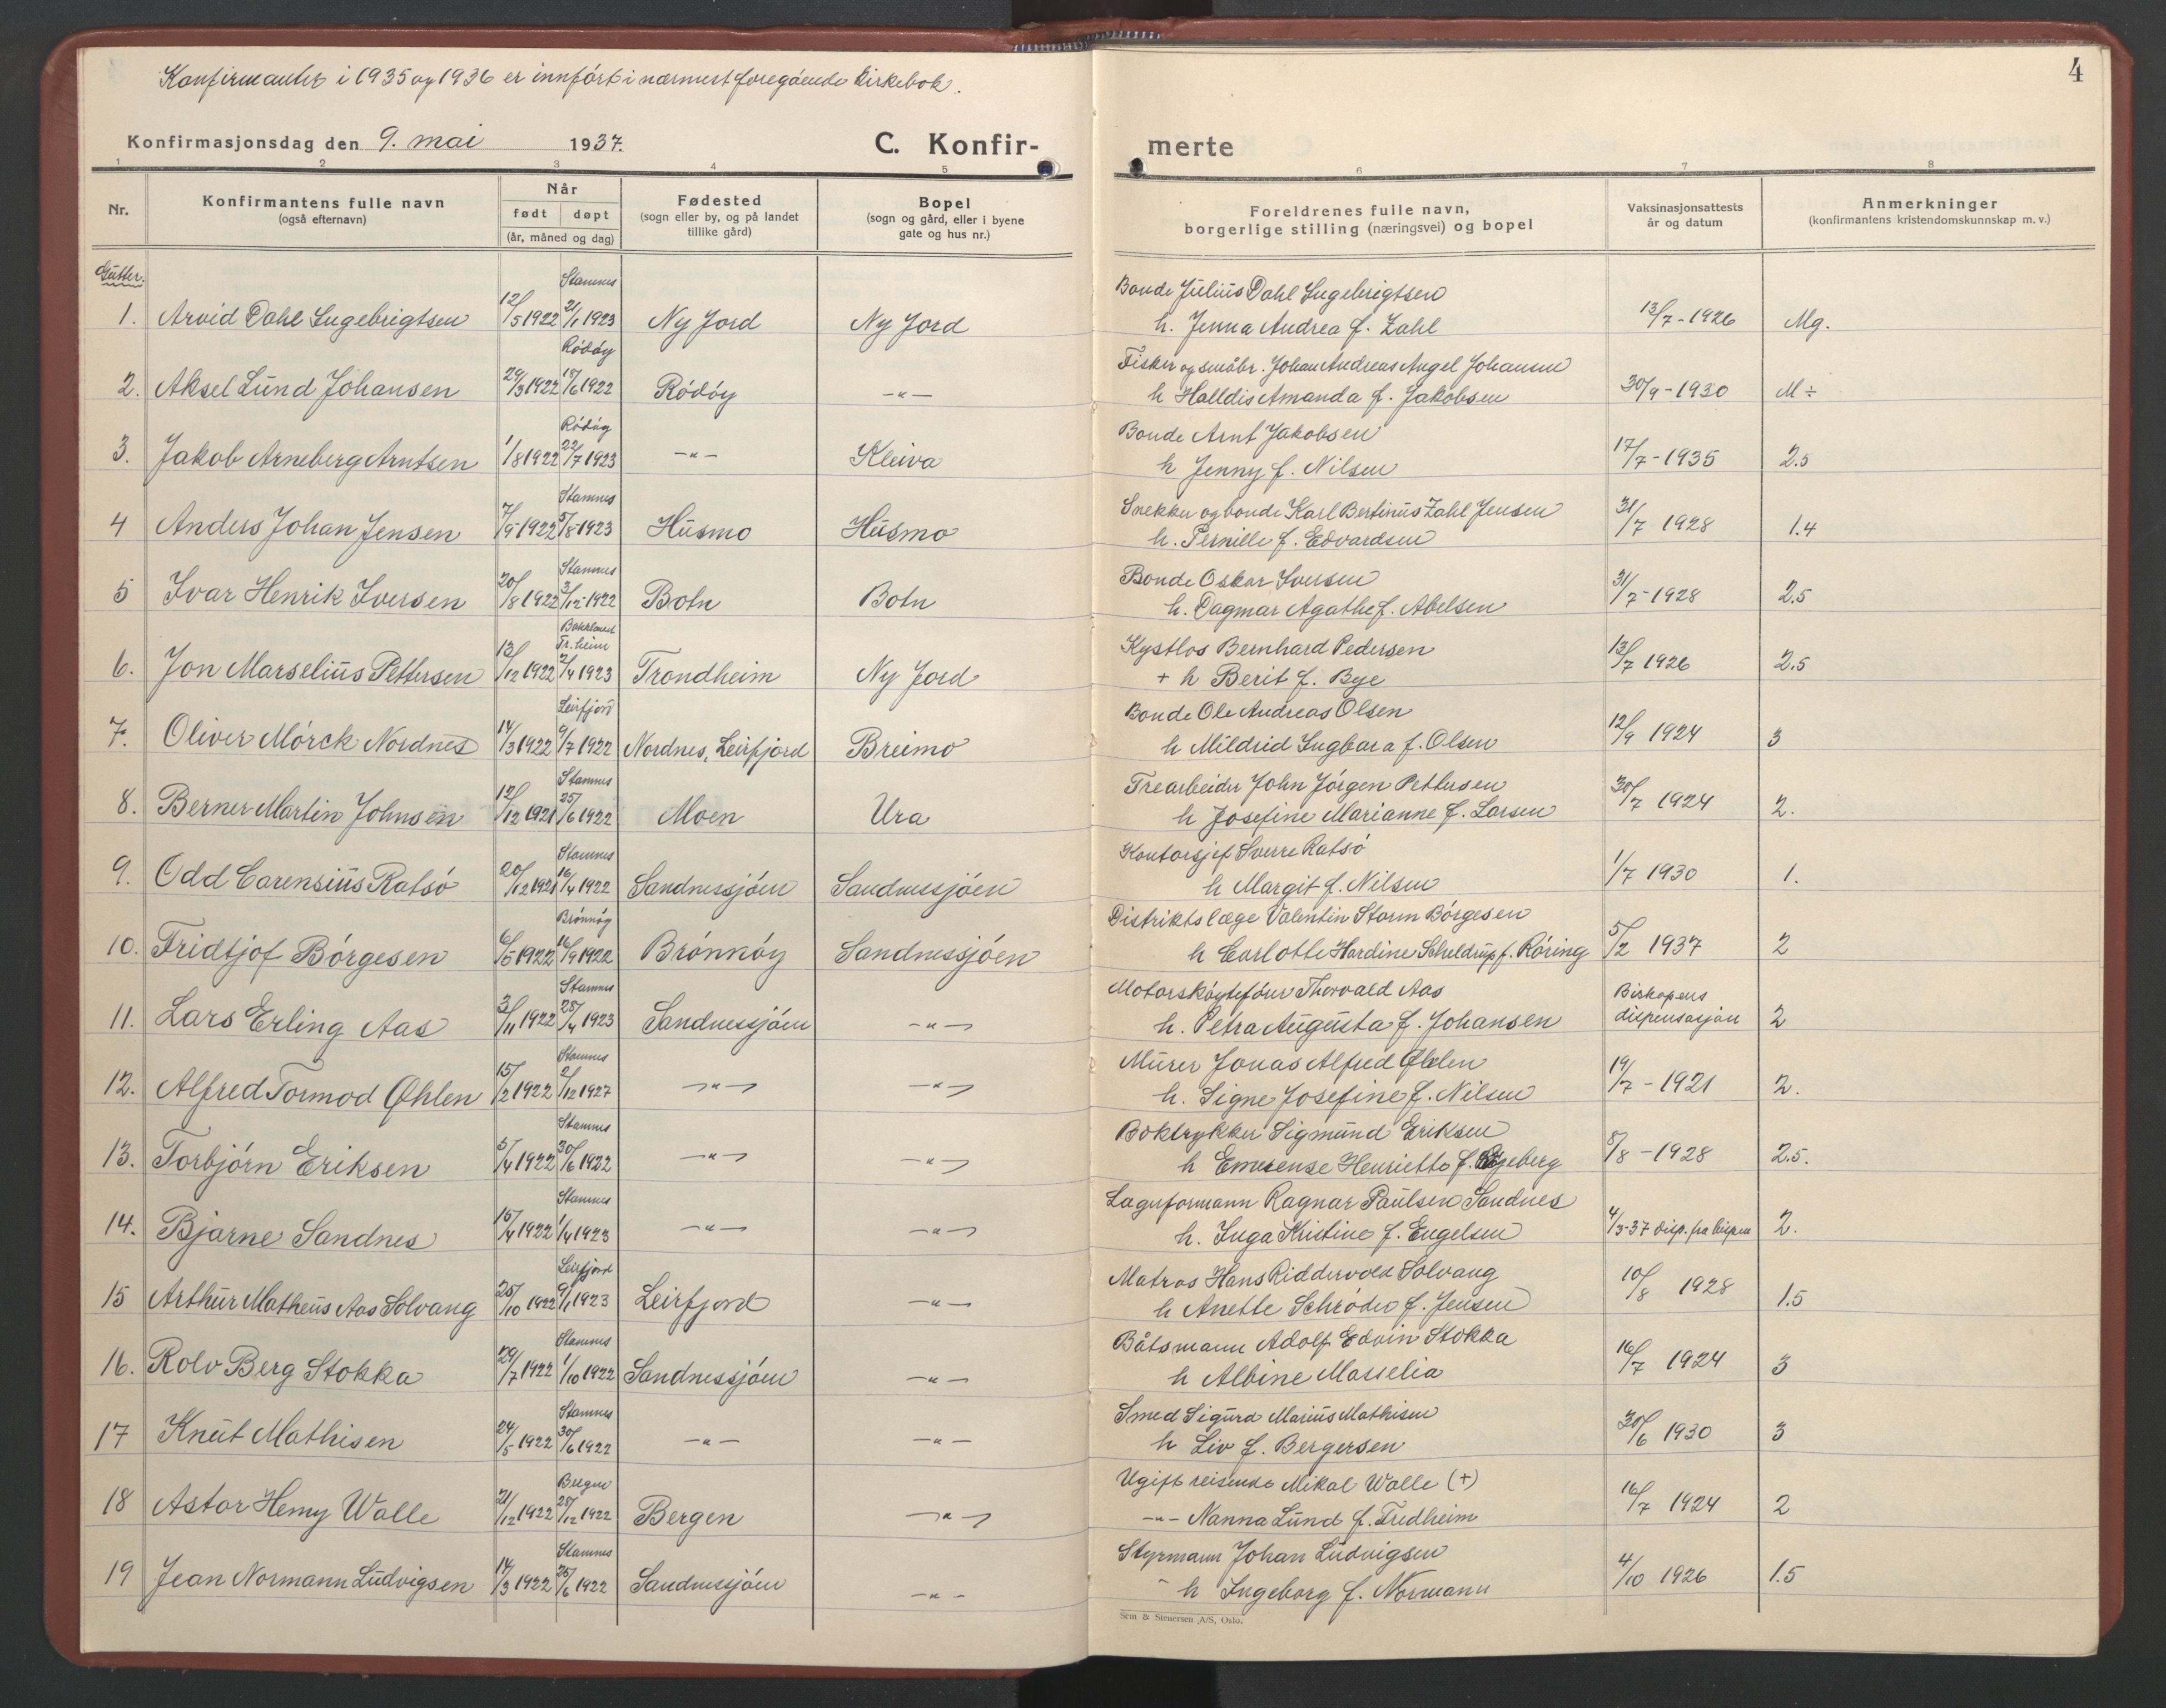 Konfirmanter i 1935 og 1936 er innført i nærmest foregående kirkebok.
4
Konfirmasjonsdag den 9. mai 1937.
C. Konfir-
merte
1 2 3 4 5 6 7 8
Nr.
Konfirmantens fulle navn
(også efternavn)
Når
født døpt
(år, måned og dag)
Fødested
(sogn eller by, og på landet
tillike gård)
Bopel
(sogn og gård, eller i byene
gate og hus nr.)
Foreldrenes fulle navn,
borgerlige stilling (næringsvei) og bopel
Vaksinasjonsattests
år og datum
Anmerkninger
(konfirmantens kristendomskunnskap m. v.)
Gutter.
Stamnes Bonde Julius Dahl Ingebrigtsen
1. Arvid Dahl Ingebrigtsen 12/5 1922 21/1 1923 Ny Jord Ny Jord h. Jenna Andrea f. Zahl 13/7-1926 Mg.
Rødøy Fisker og småbr. Johan Andreas Angel Johansen
2. Aksel Lund Johansen 29/3 1922 18/6 1922 Rødøy -"- h Halldis Amanda f. Jakobsen 30/9-1930 M ÷
Rødøy Bonde Arnt Jakobsen
3. Jakob Arneberg Arntsen 1/8 1922 22/7 1923 -"- Kleiva h Jenny f. Nilsen 17/7-1935 2.5
Stamnes Snekker og bonde Karl Bertinus Zahl Jensen
4 Anders Johan Jensen 7/9-1922 5/8-1923 Husmo Husmo h. Pernille f. Edvardsen 31/7 1928 1.4
Stamnes Bonde Oskar Iversen
5 Ivar Henrik Iversen 20/8 1922 3/12-1922 Botn Botn h. Dagmar Agathe f. Abelsen 31/7-1928 2.5
Bakklandet
Tr.heim Kystlos Bernhard Pedersen
6. Jon Marselius Pettersen 13/12 1922 2/4 1923 Trondheim Ny Jord + h Berit f. Bye 13/7 1926 2.5
Leirfjord Bonde Ole Andreas Olsen
7. Oliver Mørck Nordnes 14/3 1922 9/7 1922 Nordnes, Leirfjord Breimo h Mildrid Ingbara f. Olsen 12/9 1924 3
Stamnes Trearbeider John Jørgen Pettersen
8. Berner Martin Johnsen 12/12 1921 25/6 1922 Moen Ura h Josefine Marianne f. Larsen 30/7 1924 2.
Stamnes Kontorsjef Sverre Ratsø
9. Odd Carensius Ratsø 20/12 1921 16/4 1922 Sandnessjøen Sandnessjøen h Margit f. Nilsen 1/7 1930 1.
Brønnøy Distriktslæge Valentin Storm Børgesen
10. Fridtjof Børgesen 6/5 1922 16/9 1922 Brønnøy Sandnessjøen h Carlotte Hardine Scheldrup f. Røring 5/2 1937 2
Stamnes Motorskøytefører Thorvald Aas Biskopens
11. Lars Erling Aas 3/11 1922 28/4 1923 Sandnessjøen -"- h. Petra Augusta f. Johansen dispensasjon 2
Stamnes Murer Jonas Alfred Øhlen
12. Alfred Tormod Øhlen 15/2 1922 2/12 1927 -"- -"- h. Signe Josefine f. Nilsen 19/7-1921 2.
Stamnes Boktrykker Sigmund Eriksen
13. Torbjørn Eriksen 5/4 1922 30/6 1922 -"- -"- h Emerense Henriette f. Egeberg 8/8-1928 2.5.
Stamnes Lagerformann Ragnar Paulsen Sandnes
14. Bjarne Sandnes 15/4 1922 1/4 1923 -"- -"- h. Inga Kristine f. Engelsen 4/3-37 disp. fra bispen 2.
Leirfjord Matros Hans Riddervold Solvang
15 Arthur Matheus Aas Solvang 25/10 1922 9/1 1923 Leirfjord -"- h Anette Schrøder f. Jensen 10/8 1928 1.5
Stamnes Båtsmann Adolf Edvin Stokka
16. Rolv Berg Stokka 29/7 1922 1/10 1922 Sandnessjøen -"- h Albine Masselia 16/7 1924 3
Stamnes Smed Sigurd Marius Mathisen
17 Knut Mathisen 24/5 1922 30/6 1922 -"- -"- h Liv f. Bergersen 30/6 1930 3
Bergen Ugift reisende Mikal Walle (+)
18 Astor Henry Walle 21/12 1922 28/12 1922 Bergen -"- -"- Nanna Lund f. Fredheim 16/7 1924 2
Stamnes Styrmann Johan Ludvigsen
19 Jean Normann Ludvigsen 14/3 1922 25/6 1922 Sandnessjøen -"- h Ingeborg f. Normann 4/10 1926 1.5
Sem & Stenersen A/S, Oslo.